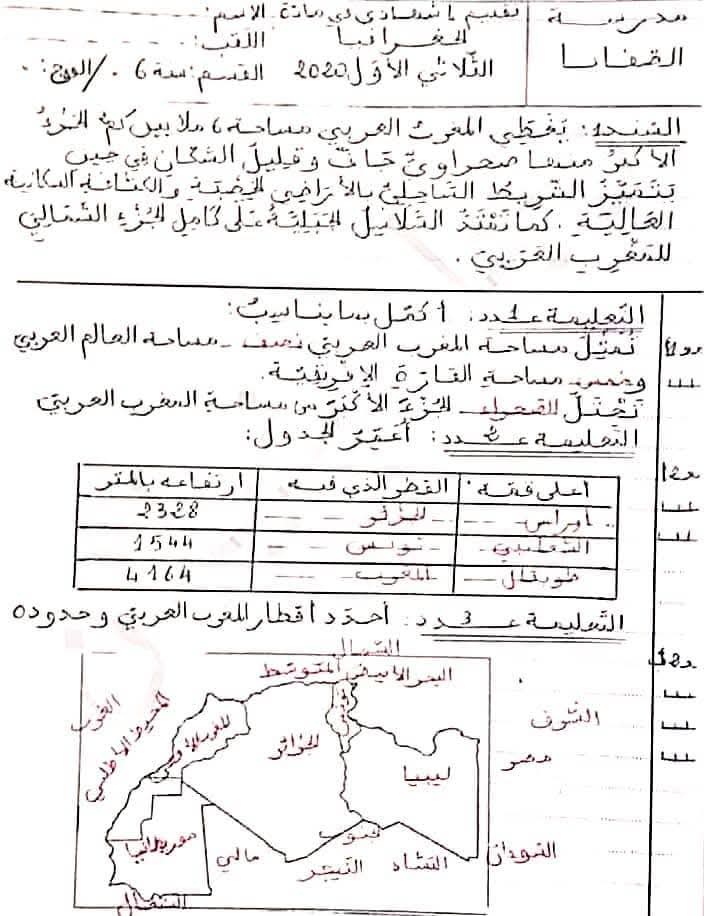 مدرسة
القضاء
تقييم مكتسباتي في مادة
الجغرافيا
الثلاثي الأول 2020
الاسم:
اللقب:
القسم: سنة 6 /الفوج:
السند 1: يغطي المغرب العربي مساحة 6 ملايين كم² الجزء
الأكبر منها صحراوي جاف وقليل السكان في حين
يتميز الشريط الساحلي بالأراضي الخصبة والكثافة السكانية
العالية. كما تمتد السلاسل الجبلية على كامل الجزء الشمالي
للمغرب العربي.
التعليمة عدد 1: أكمل بما يناسب:
تمثل مساحة المغرب العربي نصف مساحة العالم العربي
وخمس مساحة القارة الإفريقية.
تحتل الصحراء الجزء الأكبر من مساحة المغرب العربي
التعليمة عدد 2: أعمر الجدول:
أعلى قمة القطر الذي فيه ارتفاعه بالمتر
أوراس الجزائر 2328
الشعانبي تونس 1544
طوبقال المغرب 4164
التعليمة عدد 3: أحدد أقطار المغرب العربي وحدوده
مع 1
مع 2
الشمال
البحر الأبيض المتوسط
الغرب
المحيط الأطلسي
المغرب الأقصى
الجزائر
تونس
ليبيا
الشرق
مصر
موريطانيا
مالي
جنوب
النيجر
التشاد
السودان